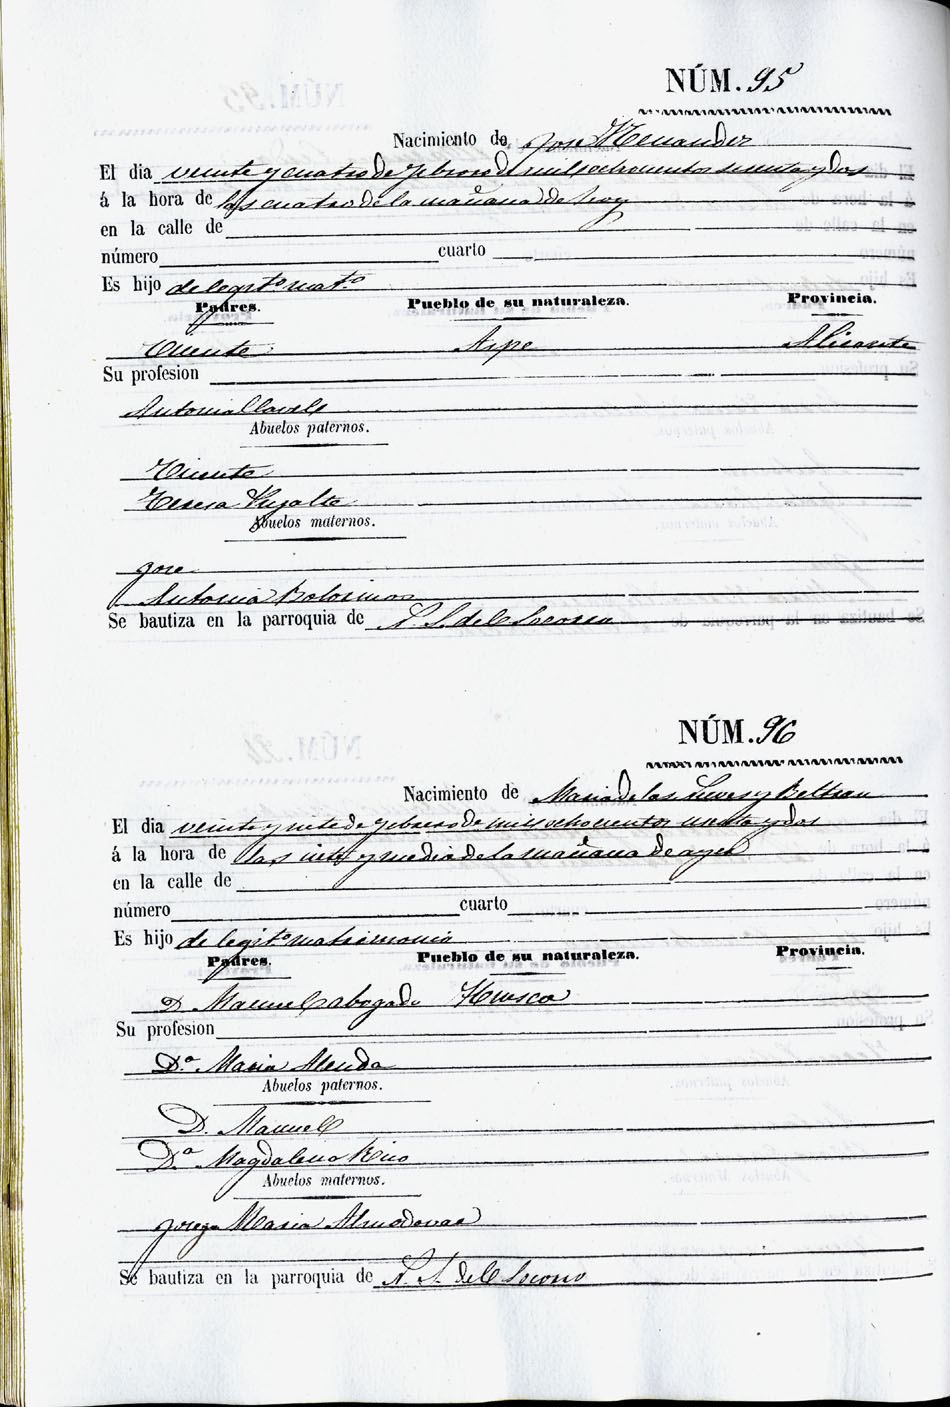 NÚM. 95
Nacimiento de Jose
El dia veinte y cuatro de febrero de mil ochocientos sesenta y dos
á la hora de las cuatro de la mañana de hoy
en la calle de
número cuarto
Es hijo de legito mato
Padres. Pueblo de su naturaleza. Provincia.
Vicente Aspe Alicante
Su profesion
Antonia
Abuelos paternos.
Vicente
Teresa
Abuelos maternos.
Jose
Antonia
Se bautiza en la parroquia de N. S. del Socorro
NÚM. 96
Nacimiento de Maria de las Nieves y Beltran
El dia veinte y siete de febrero de mil ochocientos sesenta y dos
á la hora de las siete y media de la mañana de ayer
en la calle de
número cuarto
Es hijo de legito matrimonio
Padres. Pueblo de su naturaleza. Provincia.
D. Manuel abogado Huesca
Su profesion
Da. Maria
Abuelos paternos.
D. Manuel
Da. Magdalena Rico
Abuelos maternos.
Maria Almodovar
Se bautiza en la parroquia de N. S. del Socorro